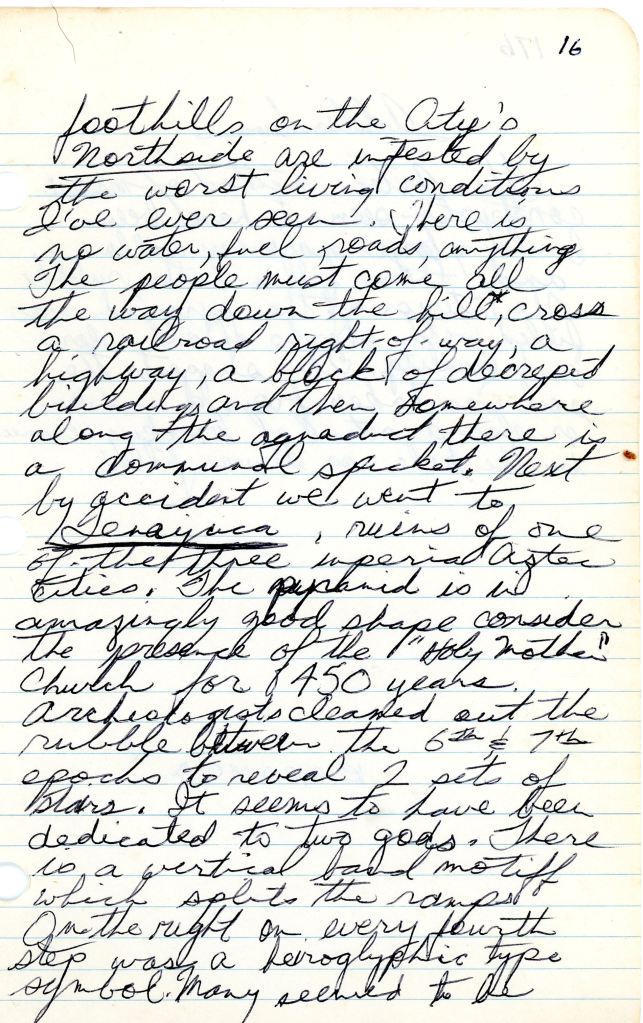 16
foothills on the City's
Northside are infested by
the worst living conditions
I've ever seen. There is
no water, fuel, roads, anything
The people must come all
the way down the hill*, cross
a railroad right-of-way, a
highway, a block of decrepid
buildings and then somewhere
along the aquaduct there is
a communal spicket. Next
by accident we went to
Tenayuca, ruins of one
of the three imperial Aztec
Cities. The pyramid is in
amazingly good shape consider
the presence of the "Holy Mother"
Church for 450 years.
Archeologists cleaned out the
rubble between the 6th & 7th
epochs to reveal 2 sets of
stars. It seems to have been
dedicated to two gods. There
is a vertical band motiff
which splits the ramps.
On the right on every fourth
step was a heiroglyphic type
symbol. Many seemed to be